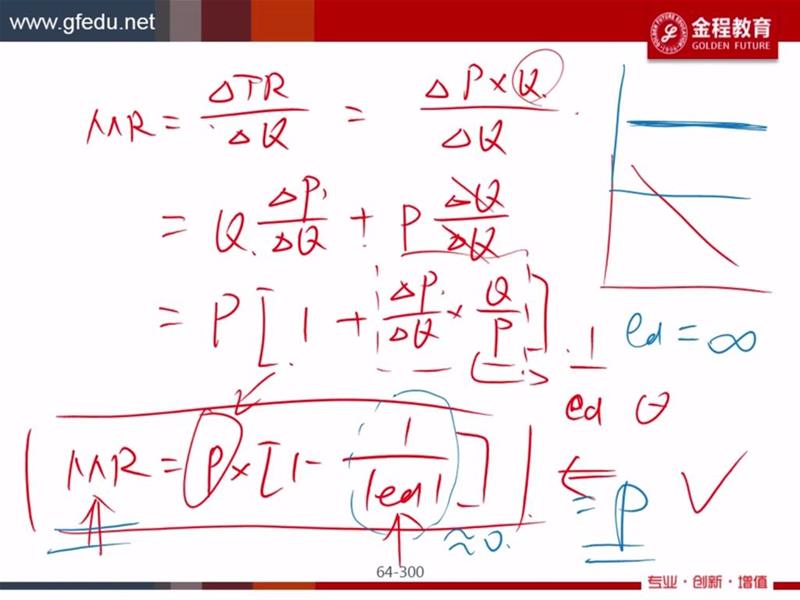 www.gfedu.net
金程教育
GOLDEN FUTURE
MR = ΔTR/ΔQ = ΔP×Q/ΔQ
= Q ΔP/ΔQ + P ΔQ/ΔQ
= P[1 + ΔP/ΔQ × Q/P]
1/ed
ed = ∞
MR = P×[1- 1/|ed|]
= P
≈0.
64-300
专业·创新·增值